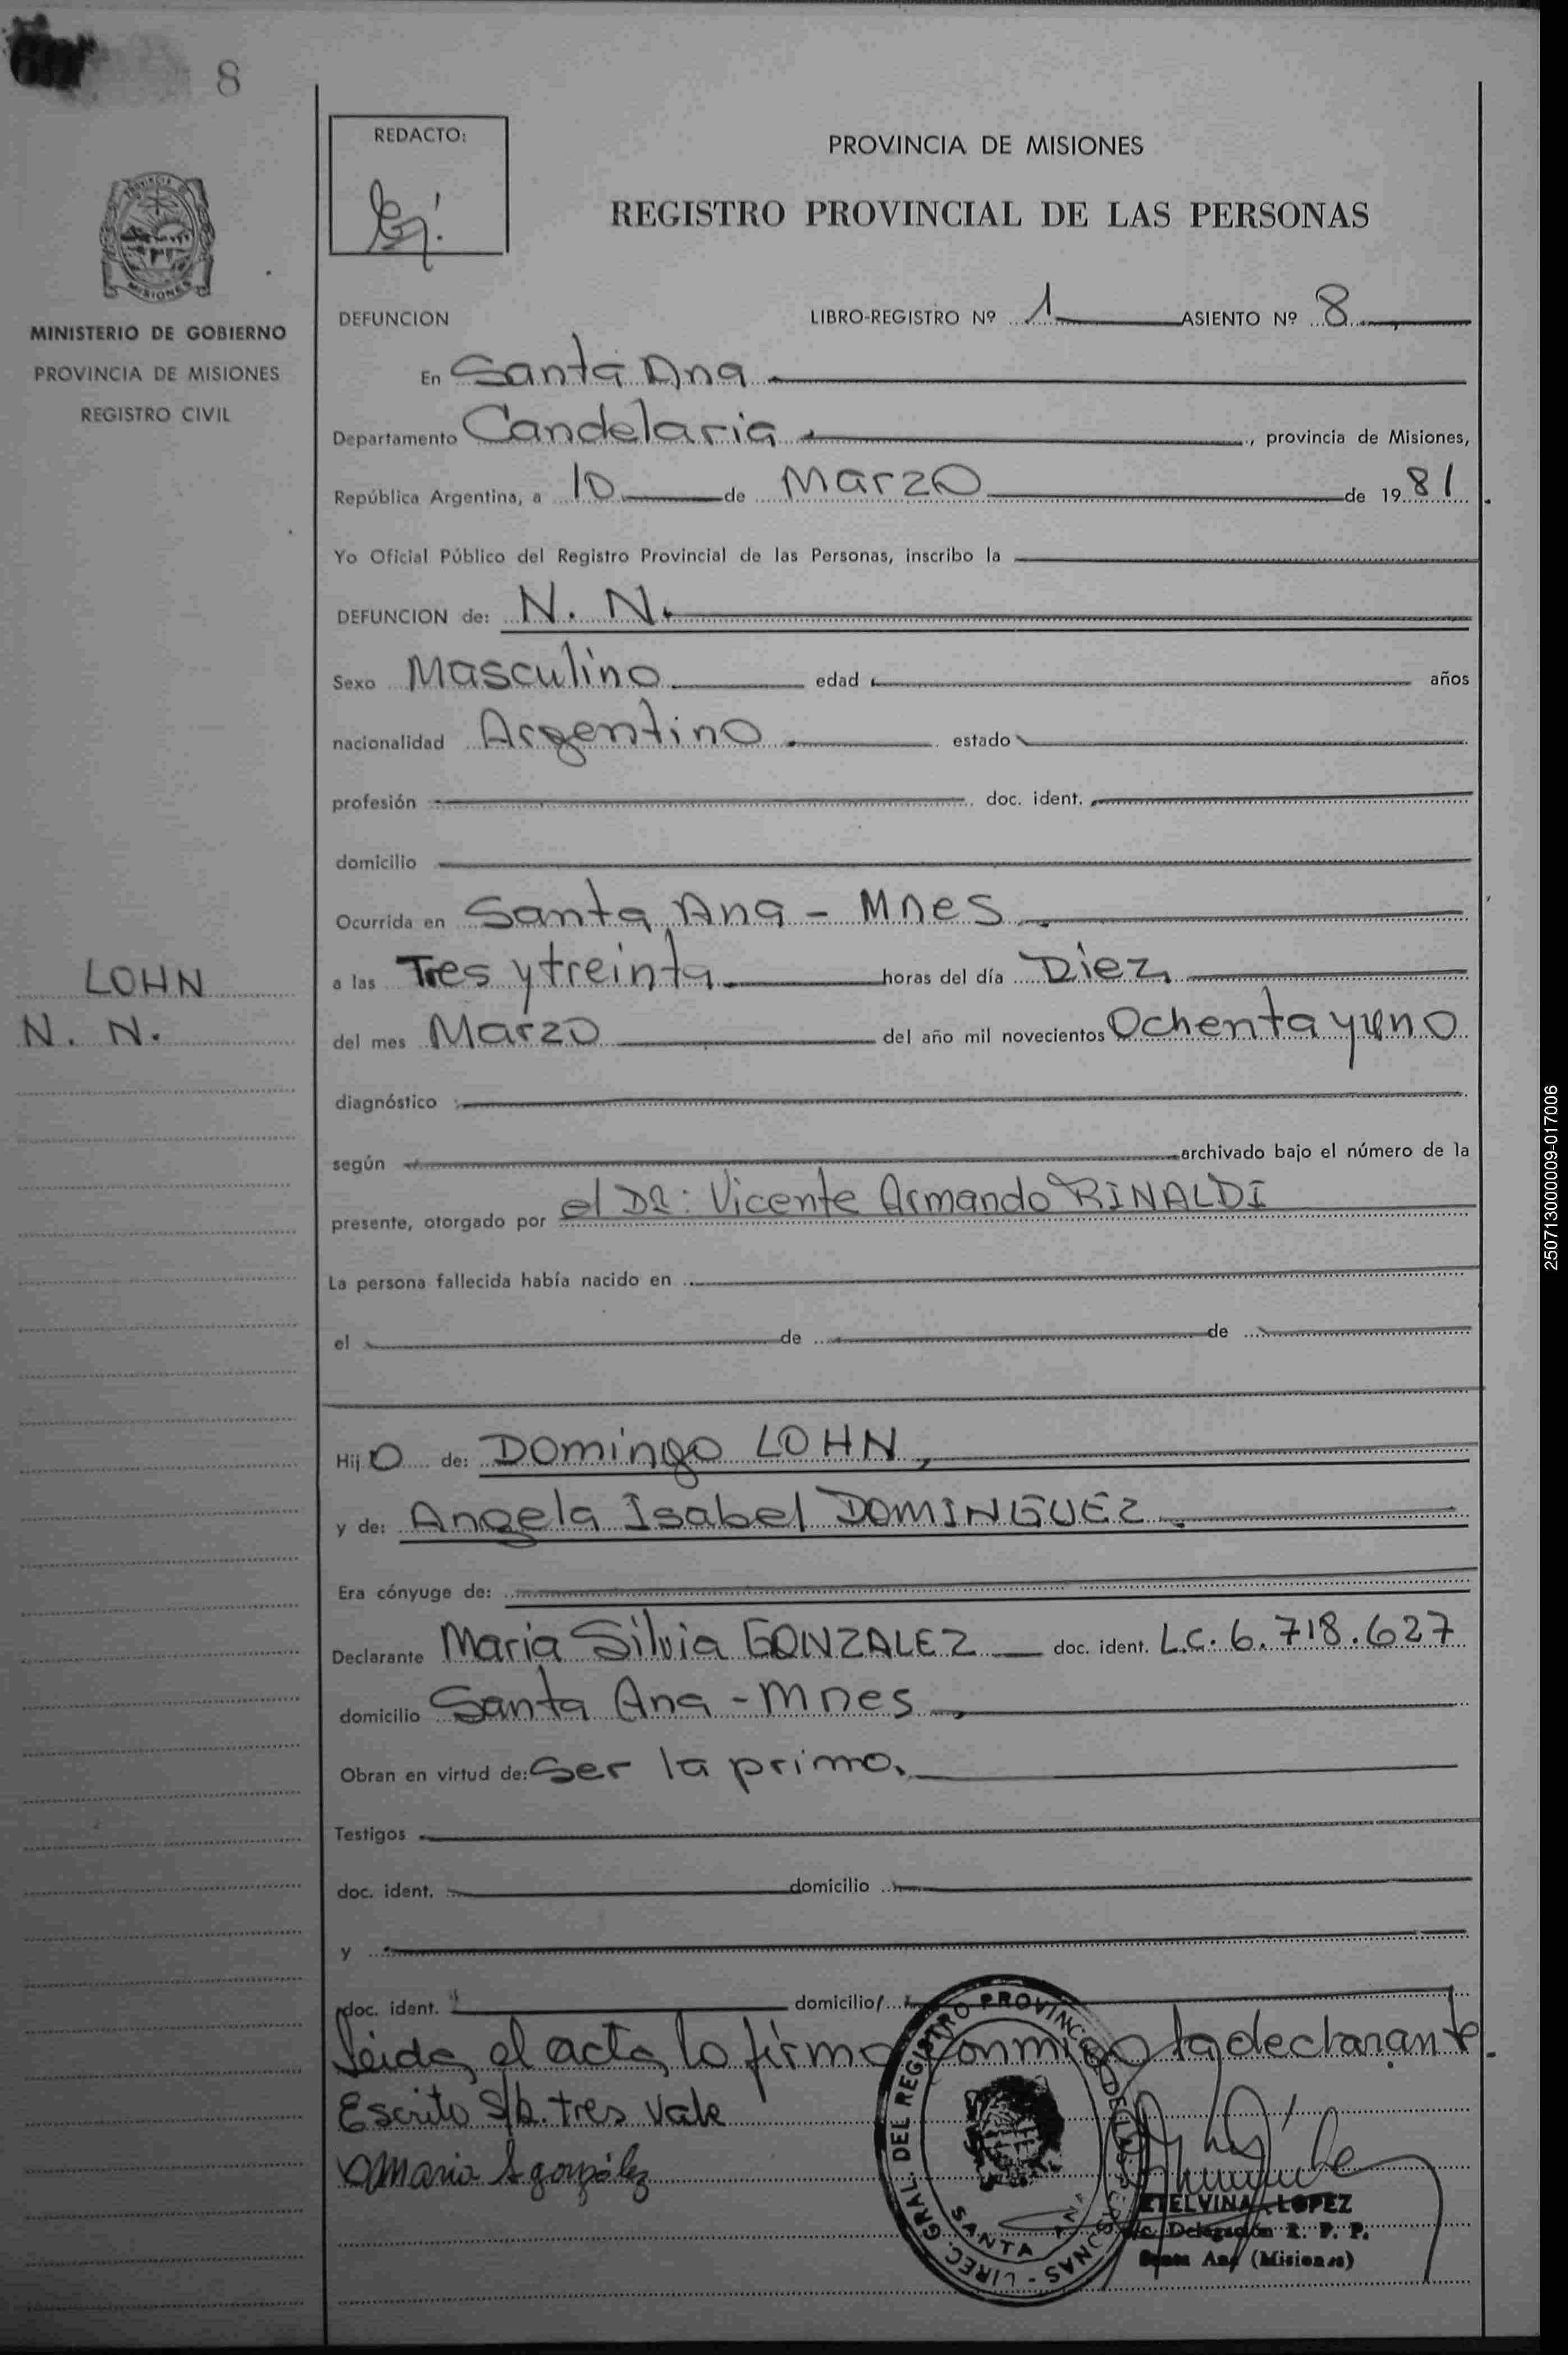 8
REDACTO:
PROVINCIA DE MISIONES
REGISTRO PROVINCIAL DE LAS PERSONAS
PROVINCIA DE
MISIONES
MINISTERIO DE GOBIERNO
PROVINCIA DE MISIONES
REGISTRO CIVIL
DEFUNCION LIBRO-REGISTRO Nº 1 ASIENTO Nº 8
En Santa Ana
Departamento Candelaria, provincia de Misiones,
República Argentina, a 10 de Marzo de 1981.
Yo Oficial Público del Registro Provincial de las Personas, inscribo la
DEFUNCION de: N. N.
Sexo Masculino edad años
nacionalidad Argentino estado
profesión doc. ident.
domicilio
Ocurrida en Santa Ana - Mnes
LOHN
N. N.
a las Tres y treinta horas del día Diez
del mes Marzo del año mil novecientos Ochenta y uno
diagnóstico
según archivado bajo el número de la
presente, otorgado por el DR: Vicente Armando RINALDI
La persona fallecida había nacido en
el de de
Hijo de: Domingo LOHN,
y de: Angela Isabel DOMINGUEZ.
Era cónyuge de:
Declarante Maria Silvia GONZALEZ doc. ident. L.C. 6.718.627
domicilio Santa Ana - Mnes
Obran en virtud de: Ser la prima.
Testigos
doc. ident. domicilio
y
doc. ident. domicilio
Leida el acta, la firma conmigo la declarante.
Escrito S/b. tres Vale
Maria S gonzález
DIREC. GRAL. DEL REGISTRO PROVINCIAL DE LAS PERSONAS
SANTA ANA
ETELVINA LOPEZ
Delegación R. P. P.
Santa Ana (Misiones)
250713000009-017006